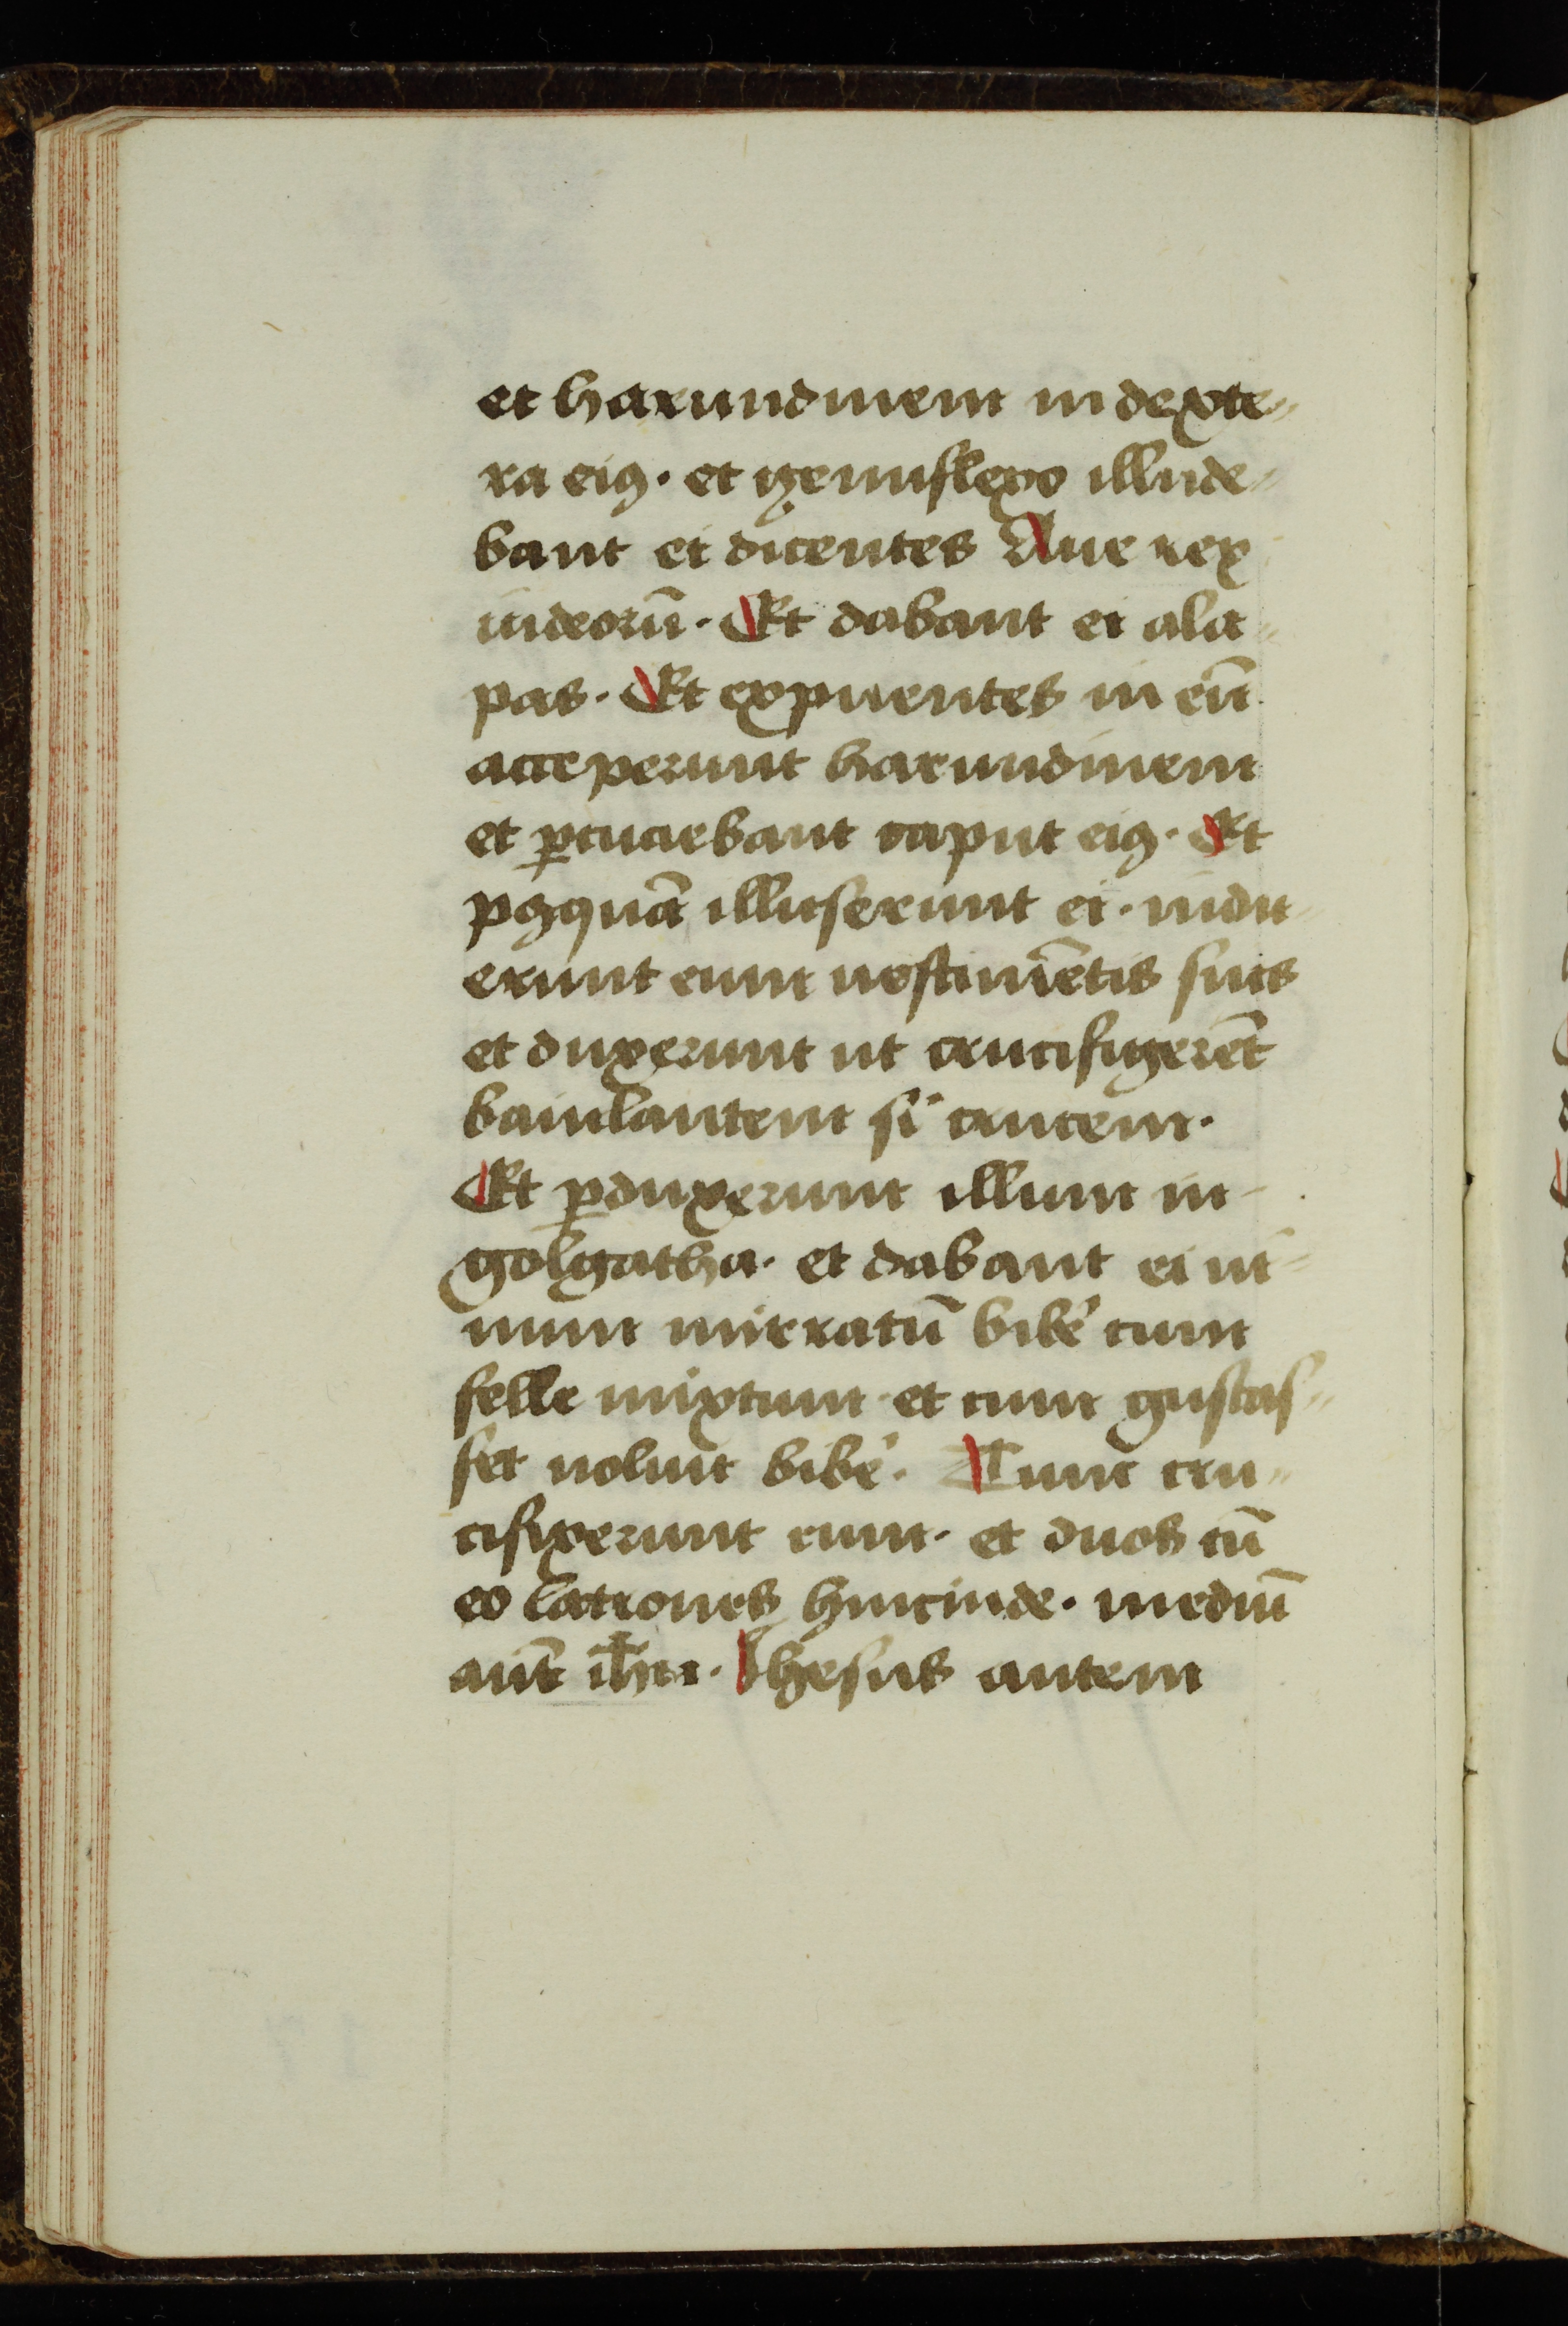 et harundinem in dexte-
ra eiꝰ. et genuflexo illude-
bant ei dicentes Aue rex
iudeorū. Et dabant ei ala-
pas. Et expuentes in eū
acceperunt harundinem
et ꝑcuciebant caput eiꝰ. Et
pꝰquā illuserunt ei. indu-
erunt eum uestimētis suis
et duxerunt ut crucifigerēt
baiulantem si crucem.
Et ꝑduxerunt illum in
golgatha. et dabant ei ui-
num mirratū bibe' cum
felle mixtum et cum gustas-
set noluit bibe'. Tunc cru-
cifixerunt eum. et duos cū
eo latrones hincinde. mediū
aūt ih̄m. Ihesus autem